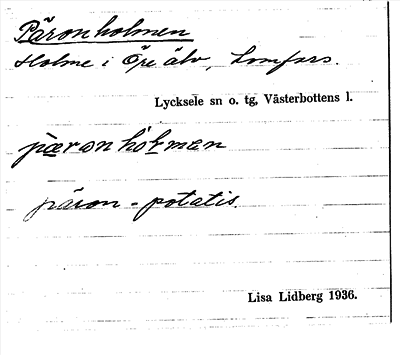 Päronholmen
Holme i Öre älv, Lomfors.
Lycksele sn o. tg, Västerbottens l.
pæronholmen
päron = potatis.
Lisa Lidberg 1936.